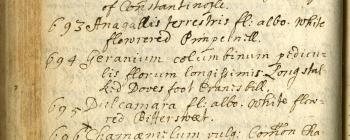 of Constantinople.
693 Anagallis terrestris fl: albo. White
flowrered Pimpernell.
694 Geranium columbinum pedicu-
lis florum longissimis Longstal-
ked Doves foot Cranesbill.
695 Dulcamara fl: albo. White flow-
red Bittersweet.
696 Chamæmelum vulg: Comon Cha